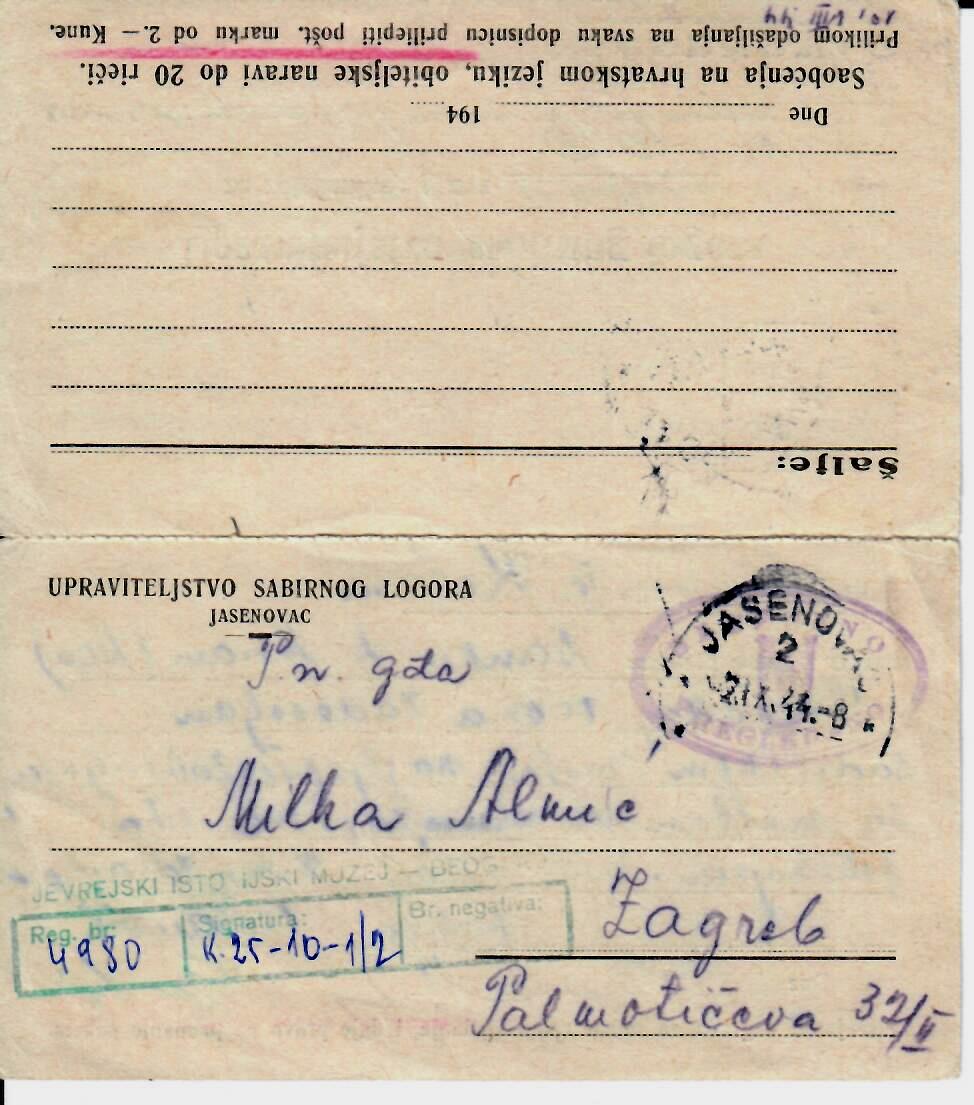 10. VIII 44
Prilikom odašiljanja na svaku dopisnicu prilijepiti pošt. marku od 2.— Kune.
Saobćenja na hrvatskom jeziku, obiteljske naravi do 20 rieči.
Dne 194
Šalje:
UPRAVITELJSTVO SABIRNOG LOGORA
JASENOVAC
JASENOVAC
2
IX.44.-8
P. n. gđa
Milka Almuc
JEVREJSKI ISTO IJSKI MUZEJ — BEOG
Reg. br: Signatura: Br. negativa:
4980 K.25-10-1/2
Zagreb
Palmotićeva 32/II